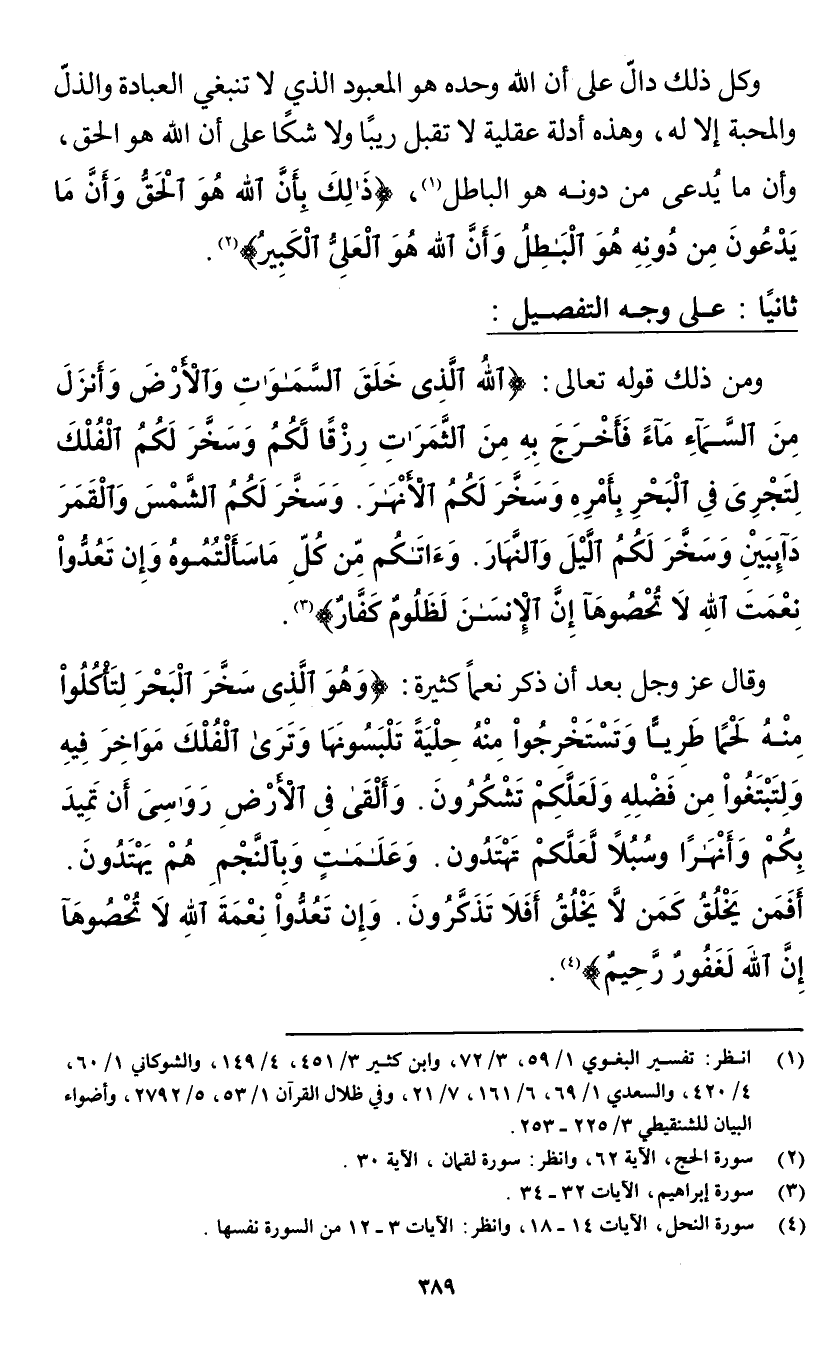 وكل ذلك دالّ على أن الله وحده هو المعبود الذي لا تنبغي العبادة والذلّ
والمحبة إلا له، وهذه أدلة عقلية لا تقبل ريبًا ولا شكًا على أن الله هو الحق،
وأن ما يُدعى من دونه هو الباطل(١)، ﴿ذَٰلِكَ بِأَنَّ ٱللَّهَ هُوَ ٱلْحَقُّ وَأَنَّ مَا
يَدْعُونَ مِن دُونِهِ هُوَ ٱلْبَـٰطِلُ وَأَنَّ ٱللَّهَ هُوَ ٱلْعَلِىُّ ٱلْكَبِيرُ﴾(٢).
ثانيًا : على وجه التفصيل :
ومن ذلك قوله تعالى: ﴿ٱللَّهُ ٱلَّذِى خَلَقَ ٱلسَّمَـٰوَٰتِ وَٱلْأَرْضَ وَأَنزَلَ
مِنَ ٱلسَّمَآءِ مَآءً فَأَخْرَجَ بِهِ مِنَ ٱلثَّمَرَٰتِ رِزْقًا لَّكُمْ وَسَخَّرَ لَكُمُ ٱلْفُلْكَ
لِتَجْرِىَ فِى ٱلْبَحْرِ بِأَمْرِهِ وَسَخَّرَ لَكُمُ ٱلْأَنْهَـٰرَ. وَسَخَّرَ لَكُمُ ٱلشَّمْسَ وَٱلْقَمَرَ
دَآئِبَيْنِ وَسَخَّرَ لَكُمُ ٱلَّيْلَ وَٱلنَّهَارَ. وَءَاتَـٰكُم مِّن كُلِّ مَاسَأَلْتُمُوهُ وَإِن تَعُدُّواْ
نِعْمَتَ ٱللَّهِ لَا تُحْصُوهَآ إِنَّ ٱلْإِنسَـٰنَ لَظَلُومٌ كَفَّارٌ﴾(٣).
وقال عز وجل بعد أن ذكر نعماً كثيرة: ﴿وَهُوَ ٱلَّذِى سَخَّرَ ٱلْبَحْرَ لِتَأْكُلُواْ
مِنْهُ لَحْمًا طَرِيًّا وَتَسْتَخْرِجُواْ مِنْهُ حِلْيَةً تَلْبَسُونَهَا وَتَرَى ٱلْفُلْكَ مَوَاخِرَ فِيهِ
وَلِتَبْتَغُواْ مِن فَضْلِهِ وَلَعَلَّكُمْ تَشْكُرُونَ. وَأَلْقَىٰ فِى ٱلْأَرْضِ رَوَٰسِىَ أَن تَمِيدَ
بِكُمْ وَأَنْهَـٰرًا وَسُبُلًا لَّعَلَّكُمْ تَهْتَدُون. وَعَلَـٰمَـٰتٍ وَبِٱلنَّجْمِ هُمْ يَهْتَدُونَ.
أَفَمَن يَخْلُقُ كَمَن لَّا يَخْلُقُ أَفَلَا تَذَكَّرُونَ. وَإِن تَعُدُّواْ نِعْمَةَ ٱللَّهِ لَا تُحْصُوهَآ
إِنَّ ٱللَّهَ لَغَفُورٌ رَّحِيمٌ﴾(٤).
(١) انظر: تفسير البغوي ١/ ٥٩، ٣/ ٧٢، وابن كثير ٣/ ٤٥١، ٤/ ١٤٩، والشوكاني ١/ ٦٠،
٤/ ٤٢٠، والسعدي ١/ ٦٩، ٦/ ١٦١، ٧/ ٢١، وفي ظلال القرآن ١/ ٥٣، ٥/ ٢٧٩٢، وأضواء
البيان للشنقيطي ٣/ ٢٢٥ ـ ٢٥٣.
(٢) سورة الحج، الآية ٦٢، وانظر: سورة لقمان ، الآية ٣٠ .
(٣) سورة إبراهيم، الآيات ٣٢ ـ ٣٤ .
(٤) سورة النحل، الآيات ١٤ ـ ١٨، وانظر: الآيات ٣ ـ ١٢ من السورة نفسها .
٣٨٩